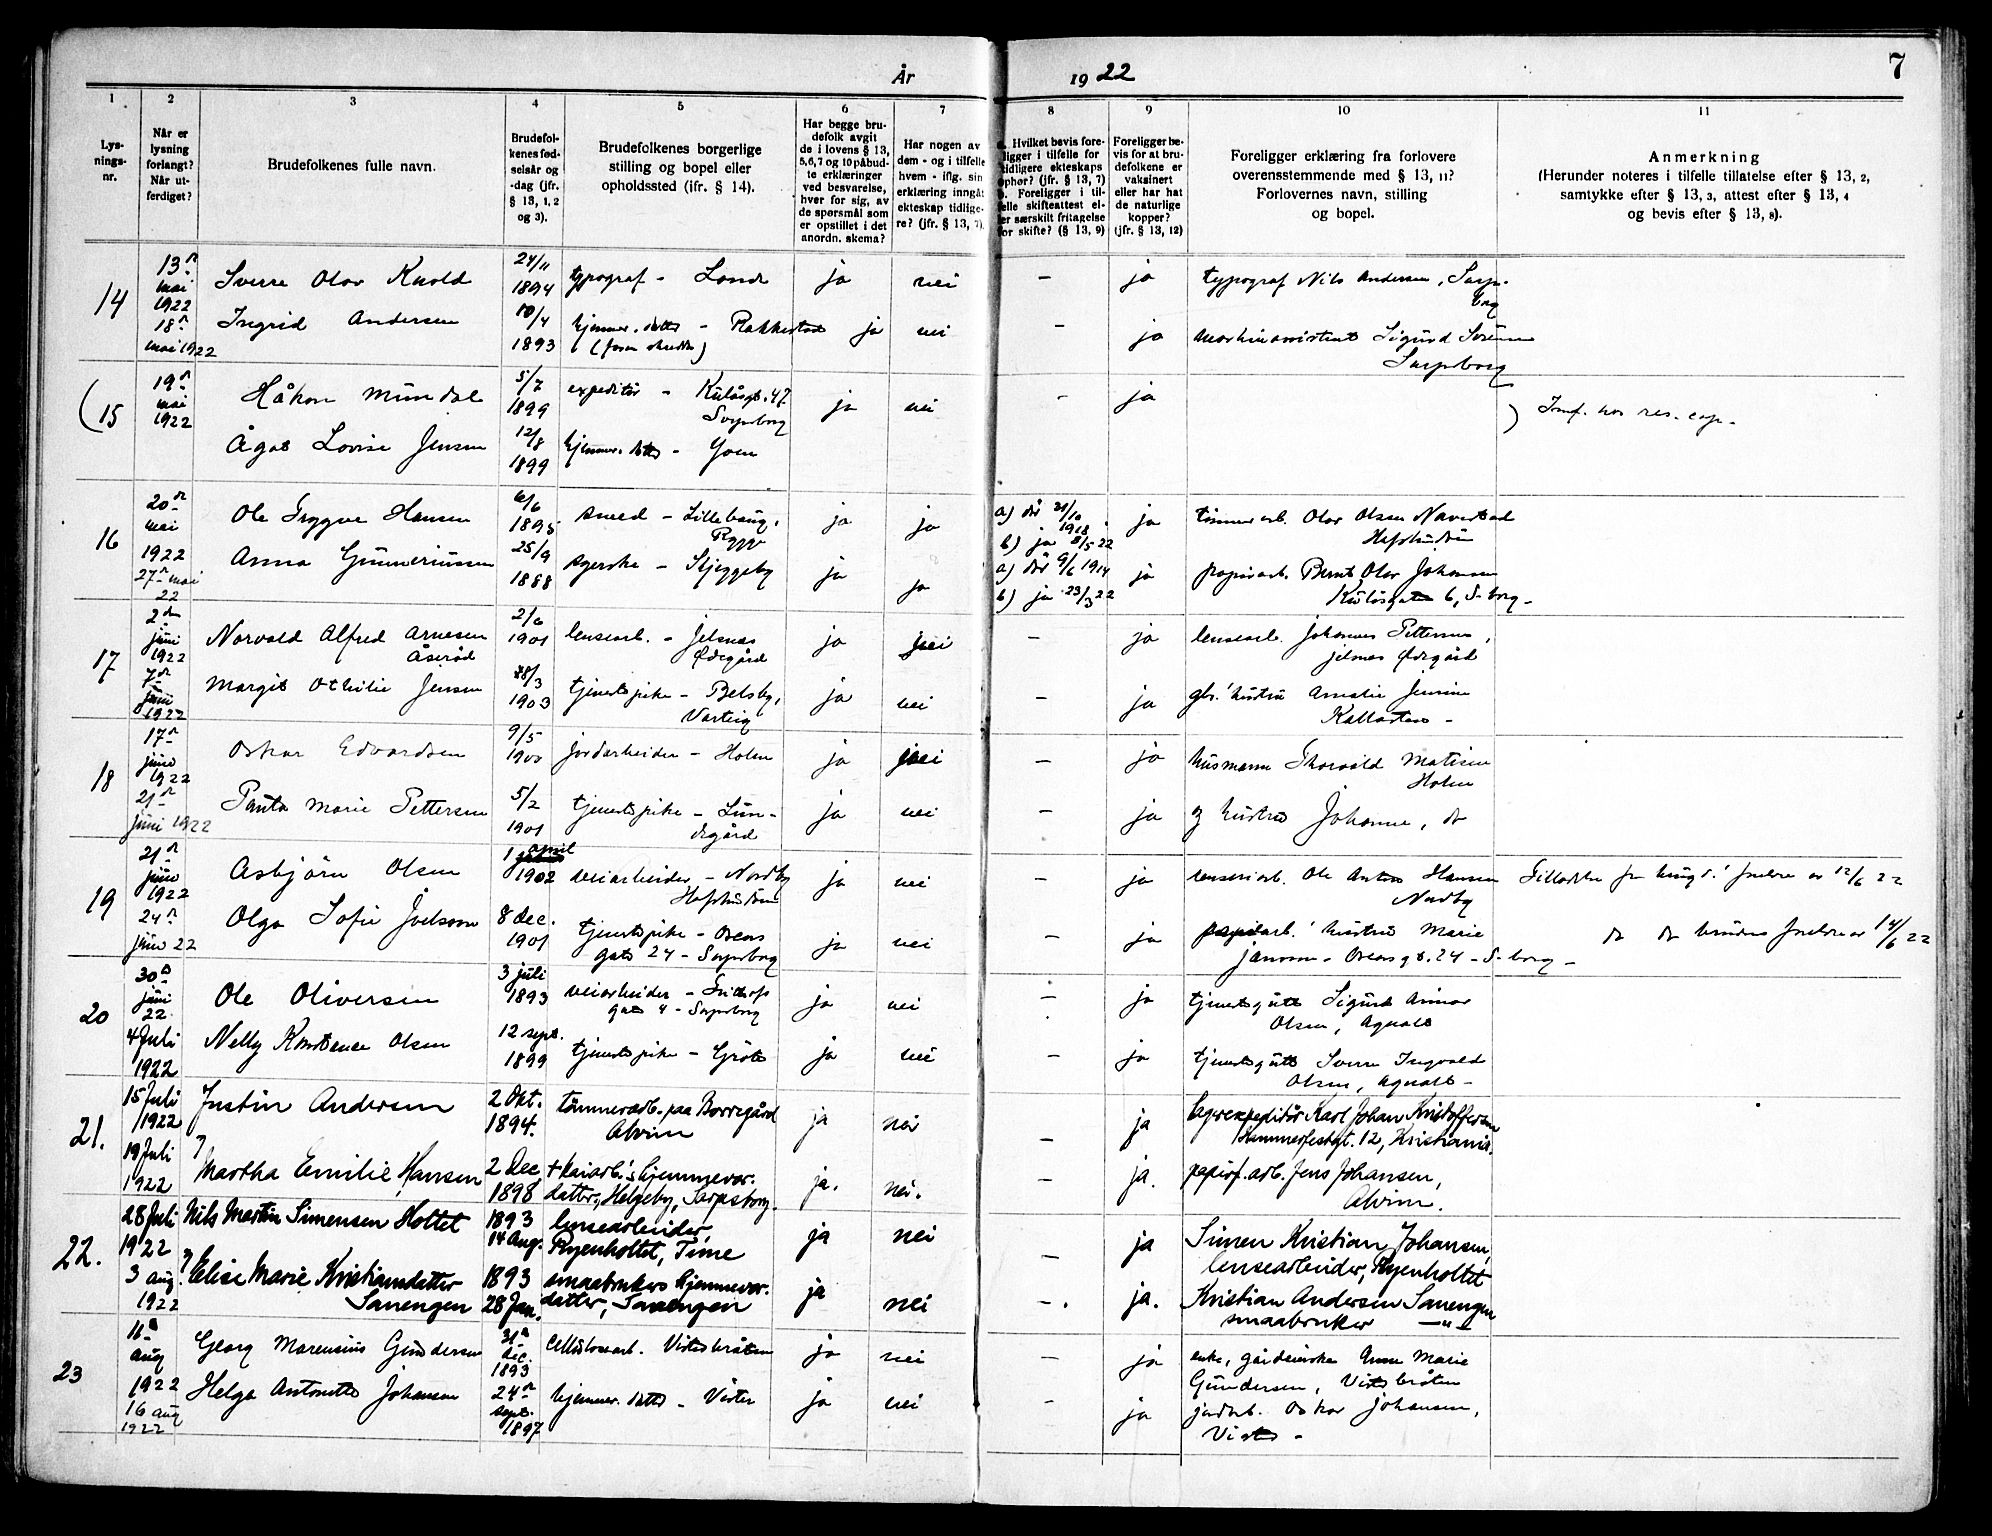 År 1922
7
1
2
3
4
5
6
7
8
9
10
11
Lys-
nings-
nr.
Når er
lysning
forlangt?
Når ut-
ferdiget?
Brudefolkenes fulle navn.
Brudefol-
kenes fød-
selsår og
-dag (jfr.
§ 13, 1, 2
og 3).
Brudefolkenes borgerlige
stilling og bopel eller
opholdssted (ifr. § 14).
Har begge bru-
defolk avgit
de i lovens § 13,
5,6,7 og 10 påbud-
te erklæringer
ved besvarelse,
hver for sig, av
de spørsmål som
er opstillet i det
anordn. skema?
Har nogen av
dem - og i tilfelle
hvem - iflg. sin
erklæring inngåt
ekteskap tidlige-
re? (jfr. § 13, 7).
Hvilket bevis fore-
ligger i tilfelle for
tidligere ekteskaps
ophør? (jfr. § 13, 7)
Foreligger i til-
felle skifteattest el-
ler særskilt fritagelse
for skifte? (§ 13, 9)
Foreligger be-
vis for at bru-
defolkene er
vaksinert
eller har hat
de naturlige
kopper?
(jfr. § 13, 12)
Foreligger erklæring fra forlovere
overensstemmende med § 13, 11?
Forlovernes navn, stilling
og bopel.
Anmerkning
(Herunder noteres i tilfelle tillatelse efter § 13, 2,
samtykke efter § 13, 3, attest efter § 13, 4
og bevis efter § 13, 8).
14
13de mai 1922
Sverre Olav Knold
24/11 1894
typograf - Lande
ja nei - ja
typograf Nils Andersen, Sarps-
borg
18de mai 1922
Ingrid Andersen
10/4 1893
hjemmev. datter - Rakkestad
ja nei - ja
maskinassistent Sigurd Sørensen
Sarpsborg
(15
19de mai 1922
Håkon Mundal
5/7 1899
expeditør - Kulåsgt. 47
Sarpsborg
ja nei - ja
Ågot Lovise Jensen
12/8 1899
hjemmev. datter - Yven
16
20de mai 1922
Ole Trygve Hansen
6/6 1895
smed - Lillebaug,
Rygge
ja ja
a) død 21/10 1918
b) ja 8/5 22
ja
tømmerarb. Olav Olsen Naverstad
Hafslundsøi
27de mai 22
Anna Gunneriussen
25/9 1888
syerske - Skjeggeby
ja ja
a) død 9/6 1914
b) ja 23/3 22
ja
papirarb. Bernt Olav Johansen
Kulåsgaten 6, S-borg -
17
2den juni 1922
Norvald Alfred Arnesen
Åserød
2/6 1901
lensearb. - Jelsnes
Ødegård
ja nei - ja
lensearb. Johannes Pettersen,
Jelsnes Ødegård
7de juni 1922
Margit Othilie Jensen
28/3 1903
tjenestepike - Belsby,
Varteig
ja nei - ja
gbr. hustru Amalie Jensen
18
17de juni 1922
Oskar Edvardsen
9/5 1900
jordarbeider - Holm
ja nei - ja
husmann Thorvald Matisen
Holm
21de juni 1922
Marie Pettersen
5/2 1901
tjenestepike - Lun-
degård
ja nei - ja
og hustru Johanne, do
19
21de juni 1922
Asbjørn Olsen
1 april 1902
veiarbeider - Nordby
Hafslundsøi
ja nei - ja
lensearb. Ole Anton Hansen
Nordby
Tilladelse fra brudg.s foreldre av 12/6 22
24de juni 22
Olga Sofie Joelsson
8 dec. 1901
tjenestepike - Oscars
gate 24 - Sarpsborg
ja nei - ja
papirarb. hustru Marie
Jansson - Oscars gt. 24 - S-borg -
do do brudens foreldre av 14/6 22
20
30de juni 22
Ole Oliversen
3 juli 1893
veiarbeider - Fridtjofs
gate 4 - Sarpsborg
ja nei - ja
tjenestegutt Sigurd Annar
Olsen, Agnalt
4 Juli 1922
Nelly Konstance Olsen
12 sept. 1899
tjenestepike - Gröte
ja nei - ja
tjenestegutt Sverre Ingvald
Olsen, Agnalt -
21.
15 Juli 1922
Justin Andersen
2 Okt. 1894.
tømmerarb. paa Borregård
Alvim
ja nei - ja
lagerexpeditør Karl Johan Kristoffersen
Hammerfestgt. 12, Kristiania.
19 Juli 1922
Martha Emilie Hansen
2 Dec. 1898
+ kaiarb.'s hjemmevær.
datter, Helgeby, Sarpsborg.
ja. nei. - ja.
papirf.arb. Jens Johansen,
Alvim.
22.
28 Juli 1922
Nils Martin Simensen Holtet
1893 14 Aug.
lensearbeider,
Ryenholtet, Tune
ja nei - ja
Simen Kristian Johansen,
lensearbeider, Ryenholtet
3 aug. 1922
Elise Marie Kristiansdatter
Sanengen
1893 28 Jan.
smaabrukers hjemmevær.
datter, Sanengen
ja nei -. ja.
Kristian Andersen Sanengen
smaabruker —"—
23
11te aug 1922
Georg Marensius Gundersen
31te dec. 1893
cellulosearb. Visterbråten
ja nei - ja
enke, gårdeierske Anne Marie
Gundersen, Visterbråten
16 aug 1922
Helga Antonette Johansen
24de sept. 1897
hjemmev. datter - Vister
ja nei - ja
jordarb. Oskar Johansen,
Vister -